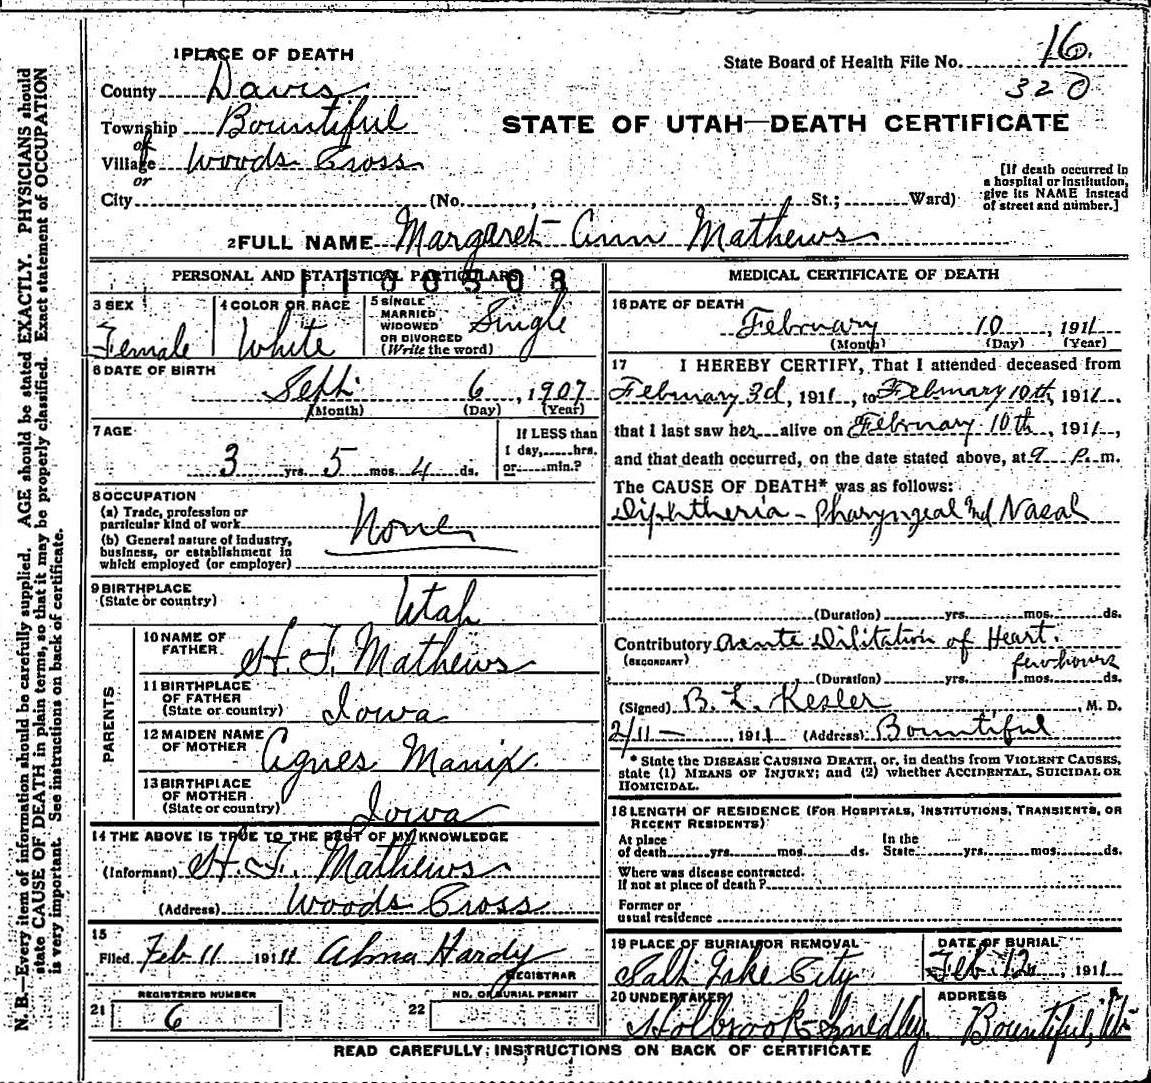 N. B.—Every item of information should be carefully supplied. AGE should be stated EXACTLY. PHYSICIANS should
state CAUSE OF DEATH in plain terms, so that it may be properly classified. Exact statement of OCCUPATION
is very important. See instructions on back of certificate.
1 PLACE OF DEATH
State Board of Health File No. 16.
320
County Davis
Township Bountiful
STATE OF UTAH—DEATH CERTIFICATE
or
Village Woods Cross
or
[If death occurred in
a hospital or institution,
give its NAME instead
of street and number.]
City (No. , St.; Ward)
2 FULL NAME Margaret Ann Mathews
PERSONAL AND STATISTICAL PARTICULARS
1100508
3 SEX
Female
4 COLOR OR RACE
White
5 SINGLE
MARRIED
WIDOWED
OR DIVORCED
(Write the word)
Single
6 DATE OF BIRTH
Sept. 6, 1907
(Month) (Day) (Year)
7 AGE
3 yrs. 5 mos. 4 ds.
If LESS than
1 day, hrs.
or min.?
8 OCCUPATION
(a) Trade, profession or
particular kind of work
(b) General nature of industry,
business, or establishment in
which employed (or employer)
None
9 BIRTHPLACE
(State or country)
Utah
PARENTS
10 NAME OF
FATHER
H. T. Mathews
11 BIRTHPLACE
OF FATHER
(State or country)
Iowa
12 MAIDEN NAME
OF MOTHER
Agnes Manix.
13 BIRTHPLACE
OF MOTHER
(State or country)
Iowa
14 THE ABOVE IS TRUE TO THE BEST OF MY KNOWLEDGE
(Informant) H. T. Mathews
(Address) Woods Cross
15
Filed Feb 11 1911 Alma Hardy
REGISTRAR
REGISTERED NUMBER
21 6
NO. OF BURIAL PERMIT
22
MEDICAL CERTIFICATE OF DEATH
16 DATE OF DEATH
February 10, 1911
(Month) (Day) (Year)
17 I HEREBY CERTIFY, That I attended deceased from
February 3d, 1911, to February 10th, 1911.
that I last saw her alive on February 10th, 1911,
and that death occurred, on the date stated above, at 9 P. m.
The CAUSE OF DEATH* was as follows:
Diphtheria - Pharyngeal and Nasal
(Duration) yrs. mos. ds.
Contributory Acute Dilitation of Heart.
(SECONDARY)
few hours
(Duration) yrs. mos. ds.
(Signed) B. L. Kesler, M. D.
2/11 - , 1911 (Address) Bountiful
* State the DISEASE CAUSING DEATH, or, in deaths from VIOLENT CAUSES,
state (1) MEANS OF INJURY; and (2) whether ACCIDENTAL, SUICIDAL OR
HOMICIDAL.
18 LENGTH OF RESIDENCE (FOR HOSPITALS, INSTITUTIONS, TRANSIENTS, OR
RECENT RESIDENTS)
At place
of death yrs. mos. ds.
In the
State yrs. mos. ds.
Where was disease contracted.
If not at place of death?
Former or
usual residence
19 PLACE OF BURIAL OR REMOVAL
Salt Lake City
DATE OF BURIAL
Feb. 12, 1911
20 UNDERTAKER
Holbrook-Smedley.
ADDRESS
Bountiful, Ut
READ CAREFULLY INSTRUCTIONS ON BACK OF CERTIFICATE